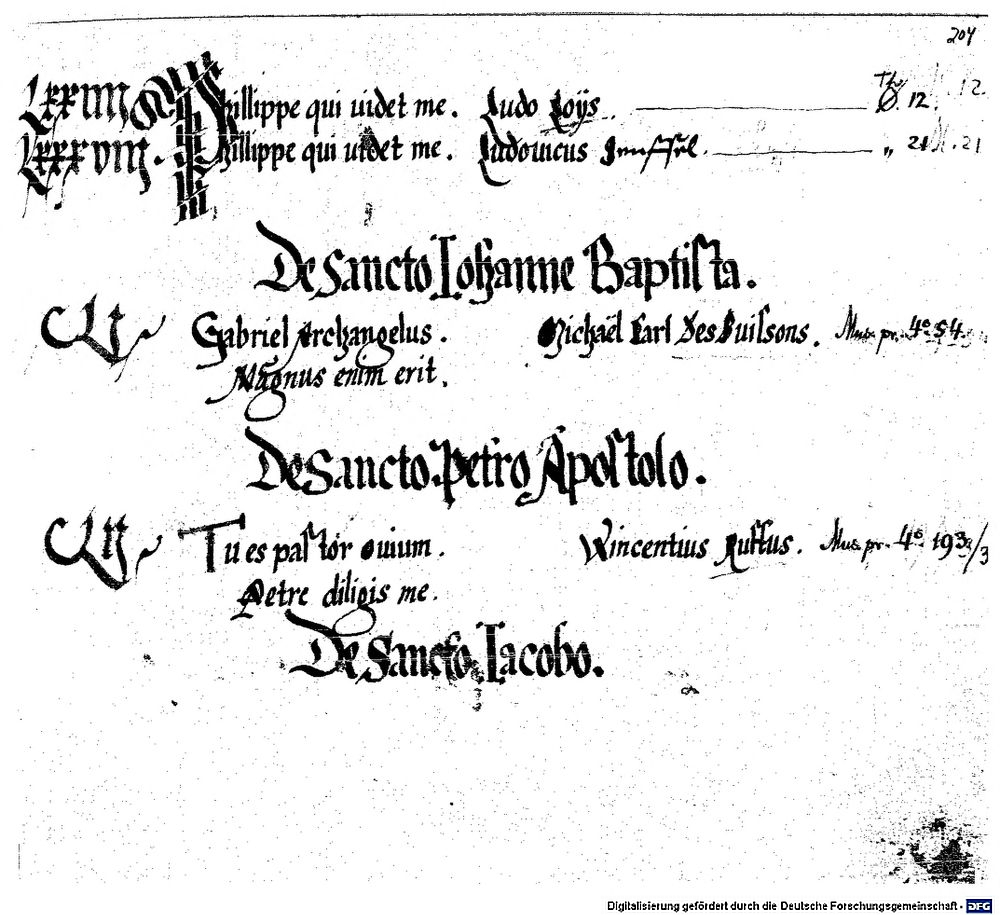 204
LXXIIII Phillippe qui uidet me. Ludo Loÿs. Th. 12. 12.
LXXXVIII. Phillippe qui uidet me. Ludouicus Senffel. „ 21. 21
De Sancto Iohanne Baptista.
CLI Gabriel Archangelus. Michaël Carl Des Buissons. Mus. pr. 4º 54.
Magnus enim erit.
De Sancto Petro Apostolo.
CLII Tu es pastor ouium. Vincentius Ruffus. Mus. pr. 4º 193/3
Petre diligis me.
De Sancto Iacobo.
Digitalisierung gefördert durch die Deutsche Forschungsgemeinschaft - DFG